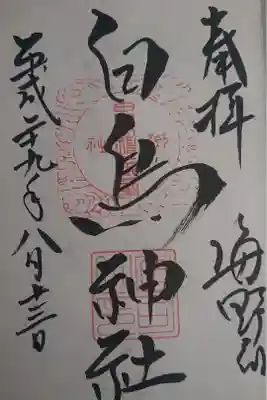 奉拝
海野宿
白鳥神社
平成二十九年八月十三日